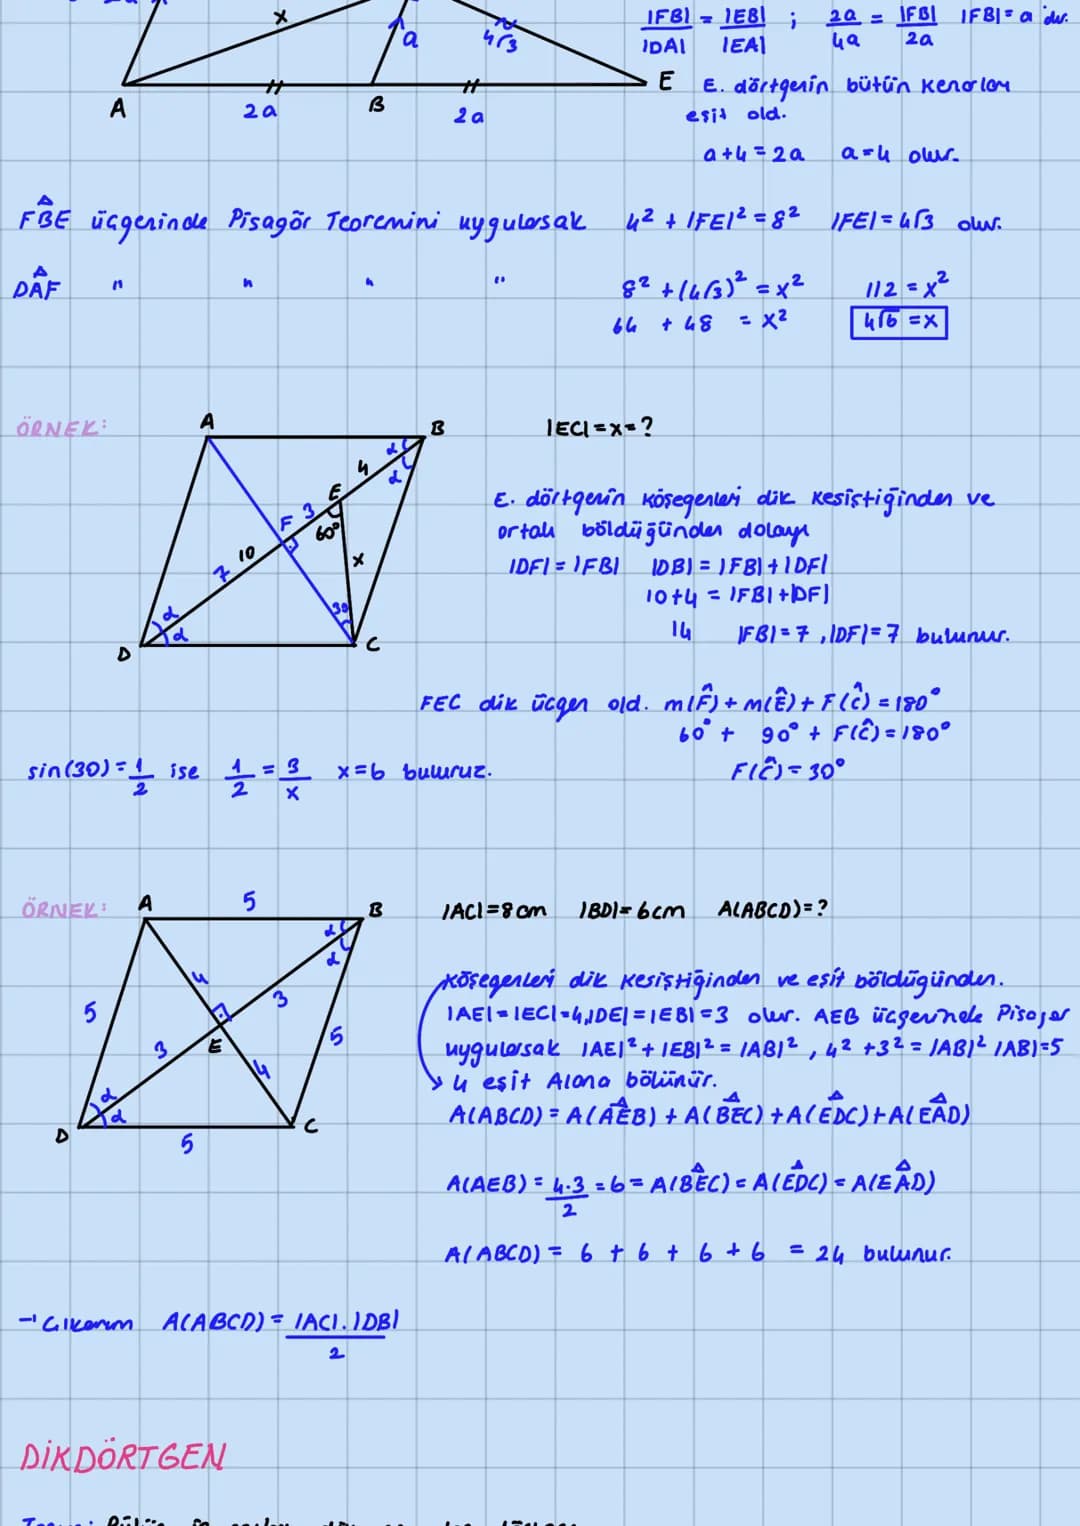 x
a
4√3
A
2a
B
2a
E
|FB| / |DA| = |EB| / |EA| ; 2a / 4a = |FB| / 2a |FB| = a 'dır.
E. dörtgenin bütün kenarları
eşit old.
a+4=2a a=4 olur.
FBE üçgeninde Pisagör Teoremini uygularsak 4² + |FE|² = 8² |FE|=4√3 olur.
DAF " " " " 8² + (4√3)² = x² 112 = x²
64 + 48 = x² 4√6 = x
ÖRNEK:
A
B
α
α
4
E
3
F
60°
10
7
x
30
α
α
D
C
|EC|=x=?
E. dörtgenin köşegenleri dik kesiştiğinden ve
ortalı böldüğünden dolayı
|DF| = |FB| |DB| = |FB| + |DF|
10+4 = |FB| + |DF|
14 |FB| = 7 , |DF| = 7 bulunur.
FEC dik üçgen old. m(F̂) + m(Ê) + F(Ĉ) = 180°
60° + 90° + F(Ĉ) = 180°
F(Ĉ) = 30°
sin(30) = 1/2 ise 1/2 = 3/x x=6 buluruz.
ÖRNEK:
A
5
B
α
α
4
3
5
5
E
3
4
α
α
D
5
C
|AC|=8cm |BD|=6cm A(ABCD)=?
Köşegenleri dik kesiştiğinden ve eşit böldügünden.
|AE|=|EC|=4,|DE|=|EB|=3 olur. AEB üçgeninde Pisagor
uygularsak |AE|² + |EB|² = |AB|² , 4² + 3² = |AB|² |AB|=5
4 eşit Alana bölünür.
A(ABCD) = A(AEB) + A(BEC) + A(EDC) + A(EAD)
A(AEB) = 4.3 / 2 = 6 = A(BEC) = A(EDC) = A(EAD)
A(ABCD) = 6 + 6 + 6 + 6 = 24 bulunur.
→ Çıkarım A(ABCD) = |AC|.|DB| / 2
DİKDÖRTGEN